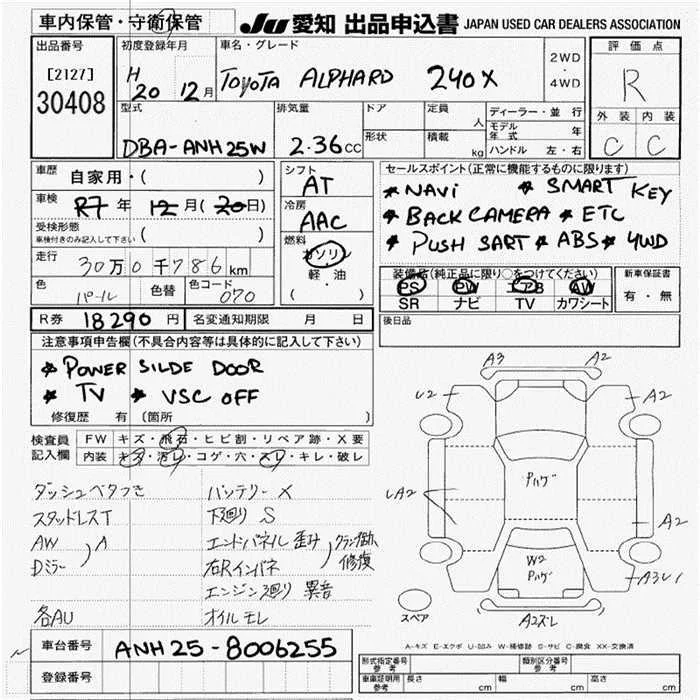 車内保管・守衛保管
JU 愛知 出品申込書 JAPAN USED CAR DEALERS ASSOCIATION
出品番号
[2127]
30408
初度登録年月
H 20 12月
車名・グレード
TOYOTA ALPHARD 240X
2WD
・
4WD
評価点
R
外装 内装
C C
型式
DBA-ANH25W
排気量
2.36cc
ドア
形状
定員
人
積載
kg
ディーラー・並行
モデル年式 年
ハンドル 左・右
車歴
自家用・( )
車検
R7年 12月(20日)
受検形態
車検付きのみ記入して下さい
( )
走行
30万0千786km
色
パール
色替
色コード
070
シフト
AT
冷房
AAC
燃料
ガソリン
軽・油
( ・ )
セールスポイント(正常に機能するものに限ります)
* NAVi * SMART KEY
* BACK CAMERA * ETC
* PUSH SART * ABS * 4WD
装備品(純正品に限り○をつけてください)
PS PW エアB AW
SR ナビ TV カワシート
新車保証書
有・無
R券 18290円
名変通知期限 月 日
後日品
注意事項申告欄(不具合内容等は具体的に記入して下さい)
* POWER SILDE DOOR
* TV * VSC OFF
修復歴 有 〔箇所 〕
検査員記入欄
FW キズ・飛石・ヒビ割・リペア跡・X要
内装 キズ・汚レ・コゲ・穴・スレ・キレ・破レ
ダッシュベタつき
スタッドレスT
AW
Dミラー
A
各AU
バッテリーX
下廻りS
エンドパネル歪み
右Rインパネ
修復
エンジン廻り異音
オイルモレ
A3 A2
U2 A2
Pハゲ
LA2 A2
W2
Pハゲ
A3L1
A2ズレ
スペア
A-キズ E-エクボ U-凹み W-補修跡 S-サビ C-腐食 XX-交換済
車台番号
ANH25-8006255
登録番号
形式指定番号
参考
類別区分番号
参考
車庫証明用
参考
長さ cm
幅 cm
高さ cm